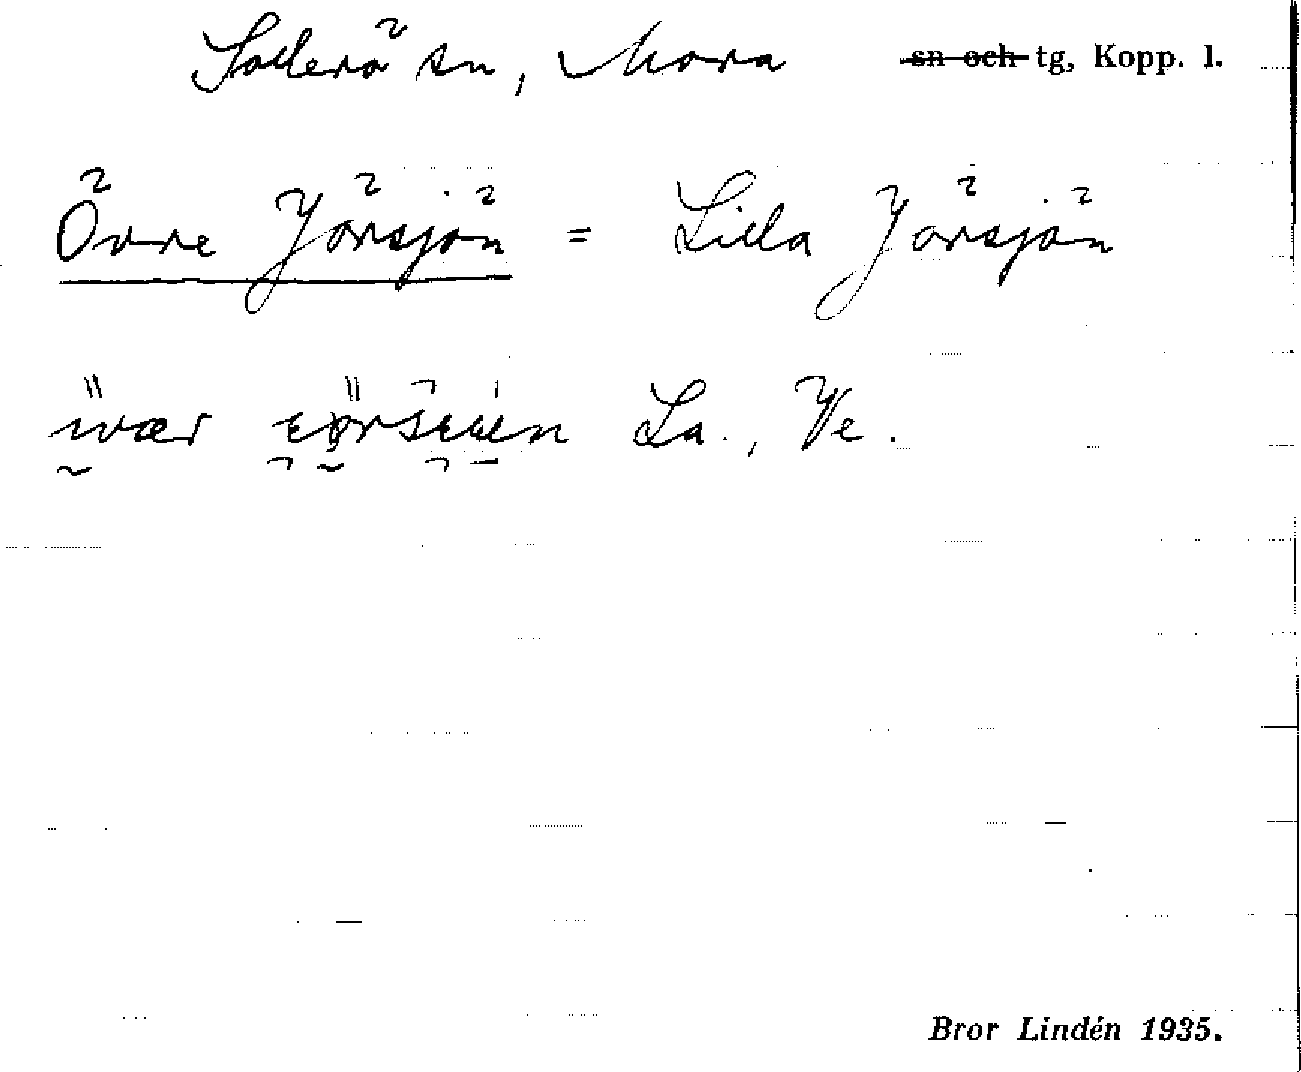 Sollerö sn, Mora ~~sn och~~ tg, Kopp. l.
Övre Jörsjön = Lilla Jörsjön
La., Ve.
Bror Lindén 1935.